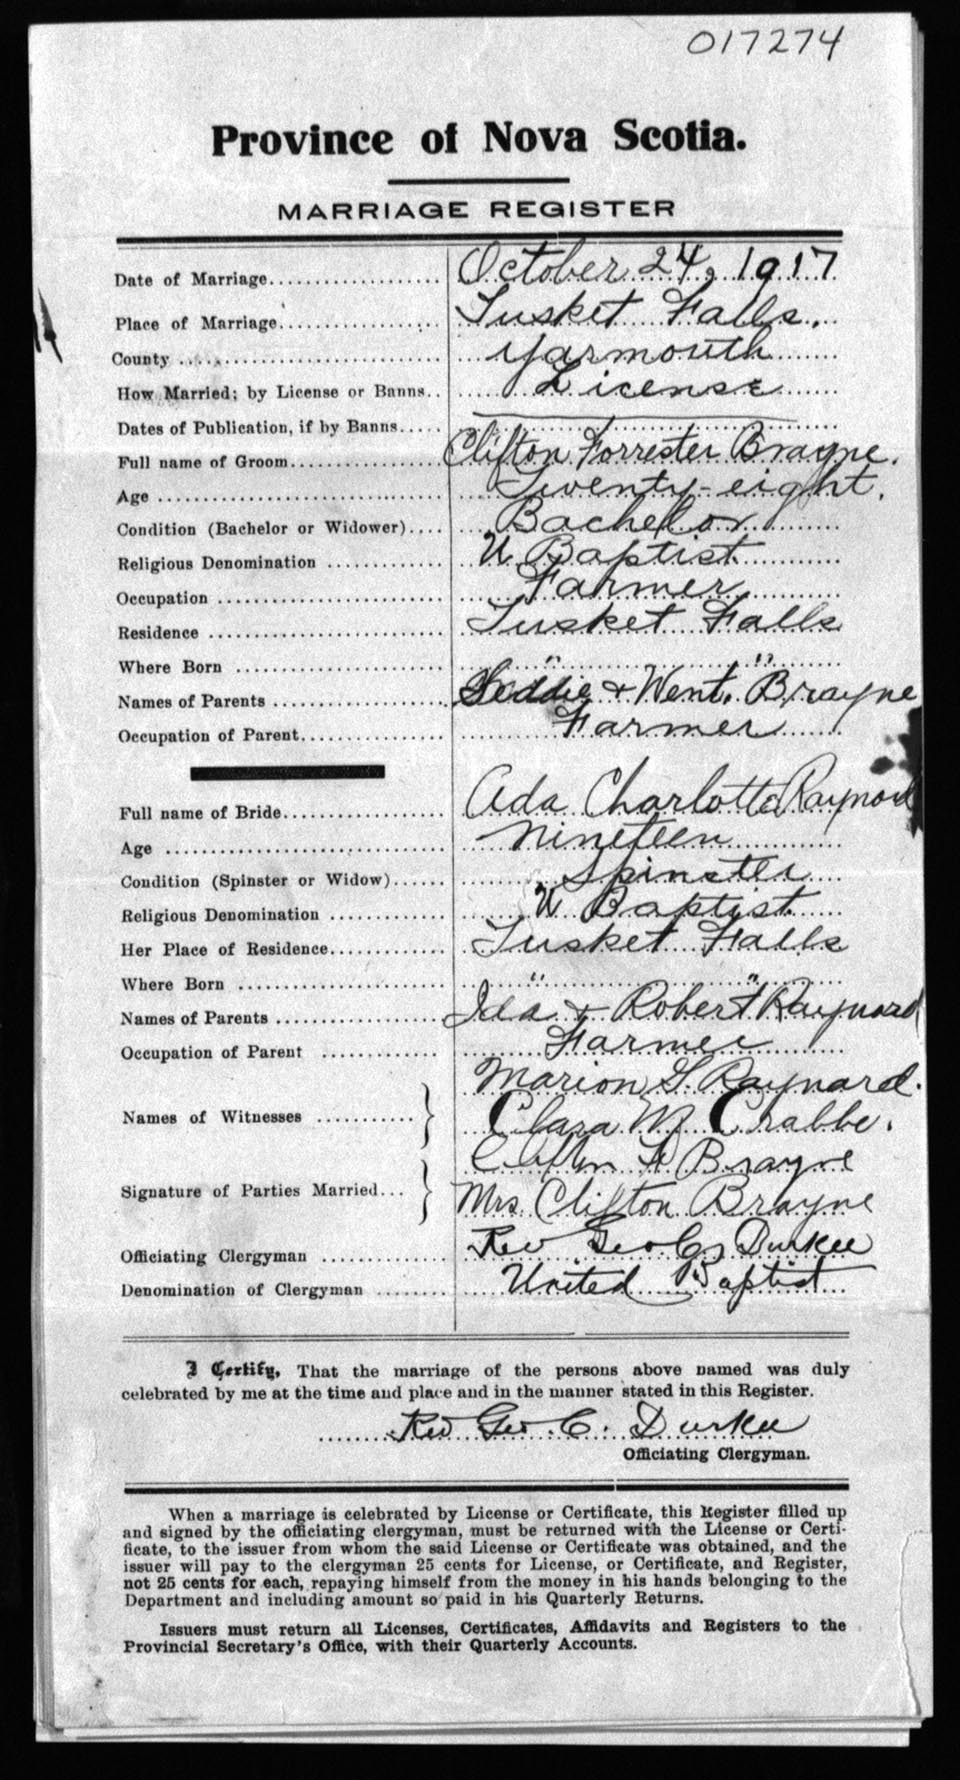 017274
Province of Nova Scotia.
MARRIAGE REGISTER
Date of Marriage................... October 24, 1917
Place of Marriage................... Tusket Falls.
County ................... Yarmouth
How Married; by License or Banns.. License
Dates of Publication, if by Banns.....
Full name of Groom................... Clifton Forrester Brayne.
Age ................... Twenty-eight.
Condition (Bachelor or Widower).... Bachelor
Religious Denomination ............. U Baptist
Occupation ................... Farmer
Residence ................... Tusket Falls
Where Born ................... " "
Names of Parents ................... & Went. Brayne
Occupation of Parent................... Farmer
Full name of Bride................... Ada Charlotta Raynard
Age ................... nineteen
Condition (Spinster or Widow)...... Spinster
Religious Denomination ............. U Baptist.
Her Place of Residence............. Tusket Falls
Where Born ................... " "
Names of Parents ................... Ida & Robert Raynard
Occupation of Parent ............. Farmer
Marion G. Raynard.
Names of Witnesses ............ } Clara M Crabbe.
Clifton F Brayne
Signature of Parties Married... } Mrs. Clifton Brayne
Officiating Clergyman ............. Rev Geo C Durkee
Denomination of Clergyman ........ United Baptist
I Certify, That the marriage of the persons above named was duly
celebrated by me at the time and place and in the manner stated in this Register.
Rev Geo. C. Durkee
Officiating Clergyman.
When a marriage is celebrated by License or Certificate, this Register filled up
and signed by the officiating clergyman, must be returned with the License or Certi-
ficate, to the issuer from whom the said License or Certificate was obtained, and the
issuer will pay to the clergyman 25 cents for License, or Certificate, and Register,
not 25 cents for each, repaying himself from the money in his hands belonging to the
Department and including amount so paid in his Quarterly Returns.
Issuers must return all Licenses, Certificates, Affidavits and Registers to the
Provincial Secretary's Office, with their Quarterly Accounts.